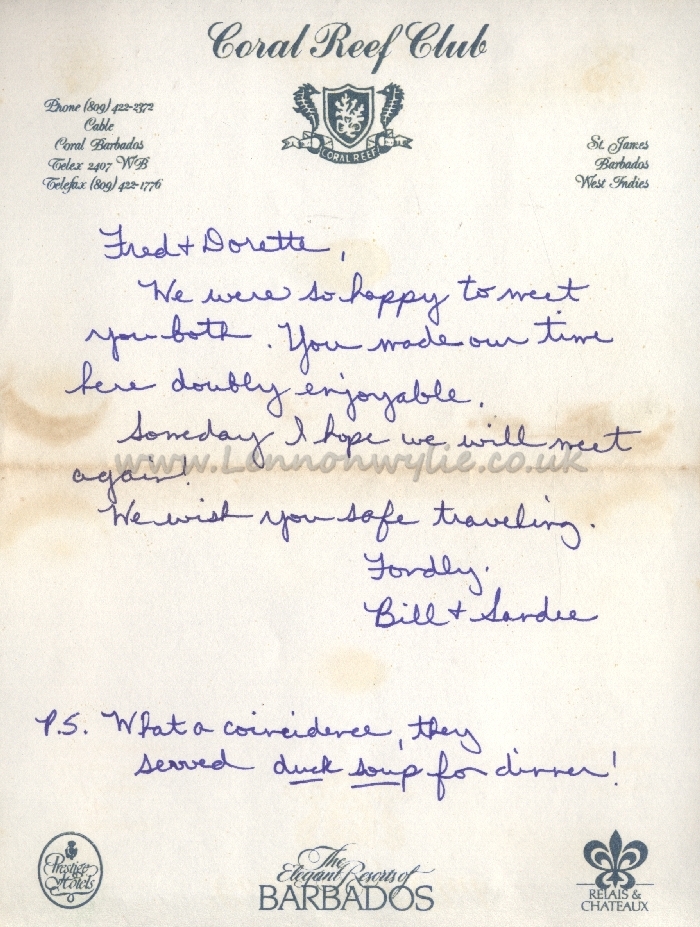 Coral Reef Club
Phone (809) 422-2372
Cable
Coral Barbados
Telex 2407 WB
Telefax (809) 422-1776
CORAL REEF
St. James
Barbados
West Indies
Fred + Dorette,
We were so happy to meet
you both. You made our time
here doubly enjoyable.
Someday I hope we will meet
again!
www.Lennonwylie.co.uk
We wish you safe traveling.
Fondly,
Bill + Sandee
P.S. What a coincidence, they
served duck soup for dinner!
Prestige
Hotels
The
Elegant Resorts of
BARBADOS
RELAIS &
CHATEAUX